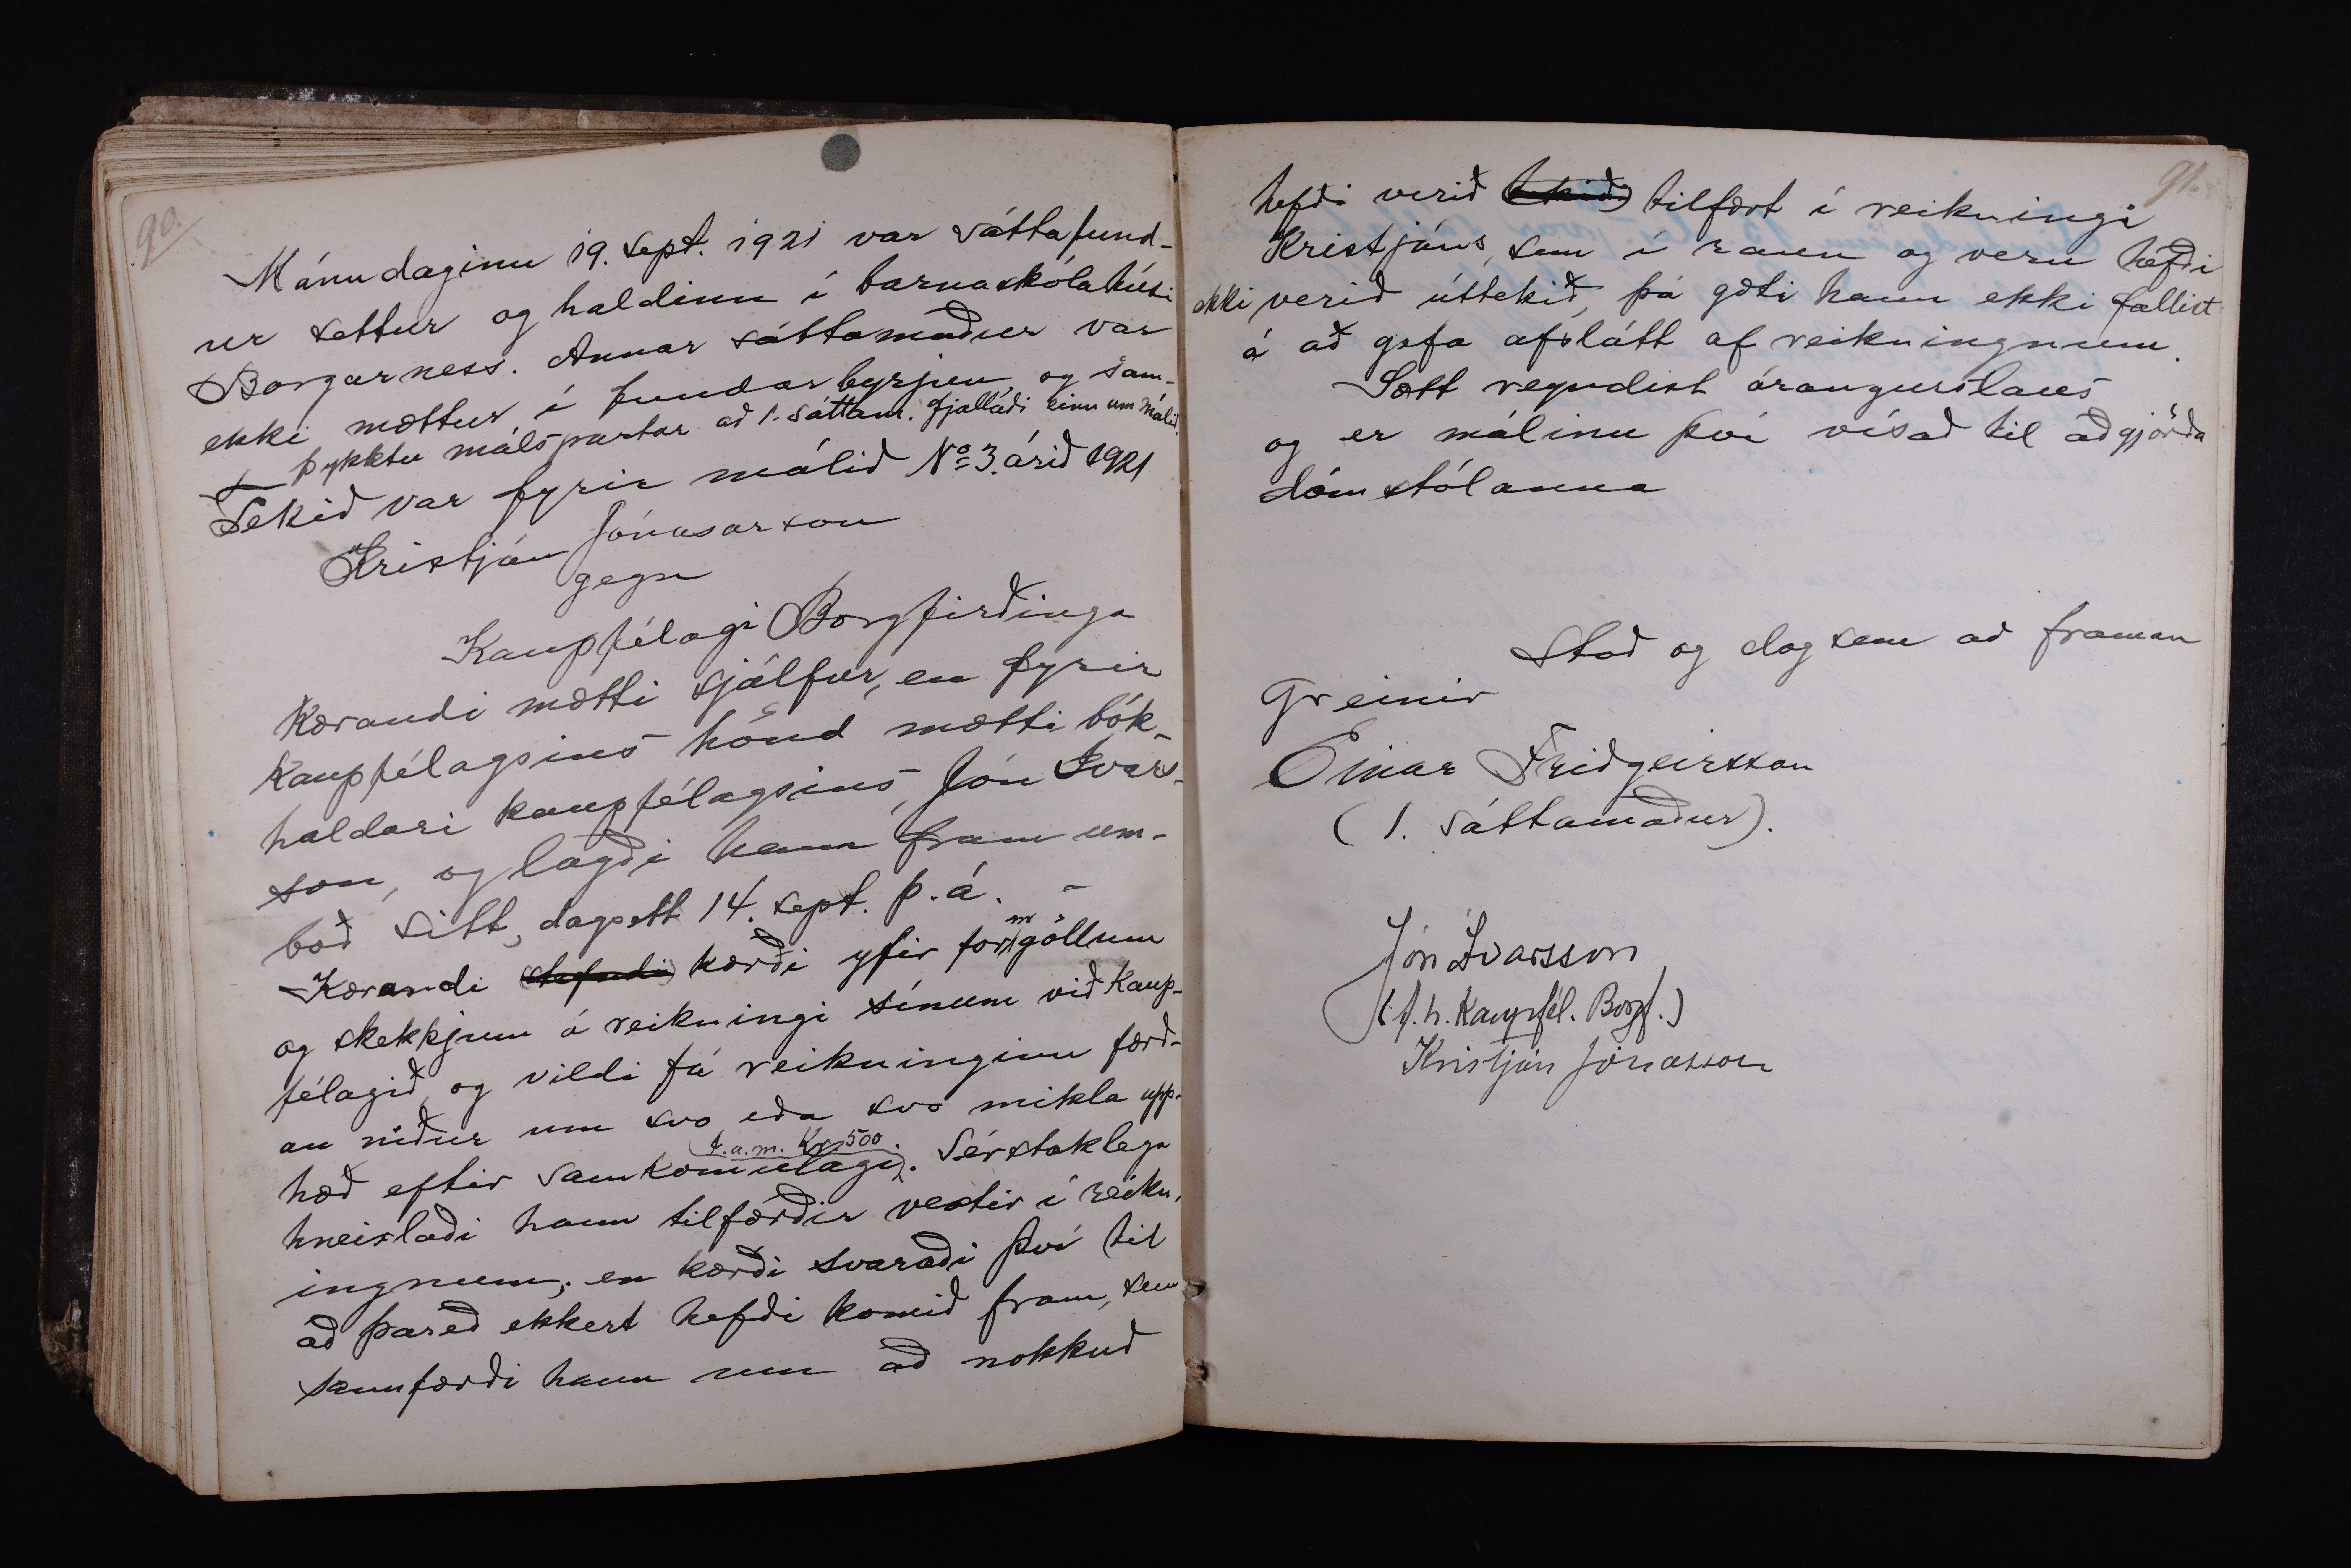 90.
Mánudaginn 19. sept. 1921 var sáttafund-
ur settur og haldinn í barnaskólahúsi
Borgarness. Annar sáttamaður var
ekki mættur í fundarbyrjun, og sam-
þykktu málspartar að 1. sáttam. fjallaði einn um málið.
Tekið var fyrir málið No 3. árið 1921
Kristján Jónasarson
gegn
Kaupfélagi Borgfirðinga
Kærandi mætti sjálfur, en fyrir
kaupfélagsins hönd mætti bók-
haldari kaupfélagsins, Jón Ivars-
son, og lagði hann fram um-
boð sitt, dagsett 14. sept. þ. á. -
Kærandi kærði yfir formgöllum
og skekkjum á reikningi sínum við Kaup-
félagið, og vildi fá reikninginn færð-
an niður um svo eða svo mikla upp-
hæð eftir samkomulagi, t.a.m. Kr. 500. Sérstaklega
hneixlaði hann tilfærðir vextir í reikn-
ingnum; en kærði svaraði því til
að þareð ekkert hefði komið fram, sem
sannfærði hann um að nokkuð
91.
hefði verið tilfært í reikningi
Kristjáns, sem í raun og veru hefði
ekki verið úttekið, þá gæti hann ekki fallist
á að gefa afslátt af reikningnum.
Sátt reyndist árangurslaus
og er málinu því vísað til aðgjörða
dómstólanna
Stað og dag sem að framan
greinir
Einar Friðgeirsson
(1. sáttamaður).
Jón Ívarsson
(f. h. Kaupfél. Borgf.)
Kristján Jónasson